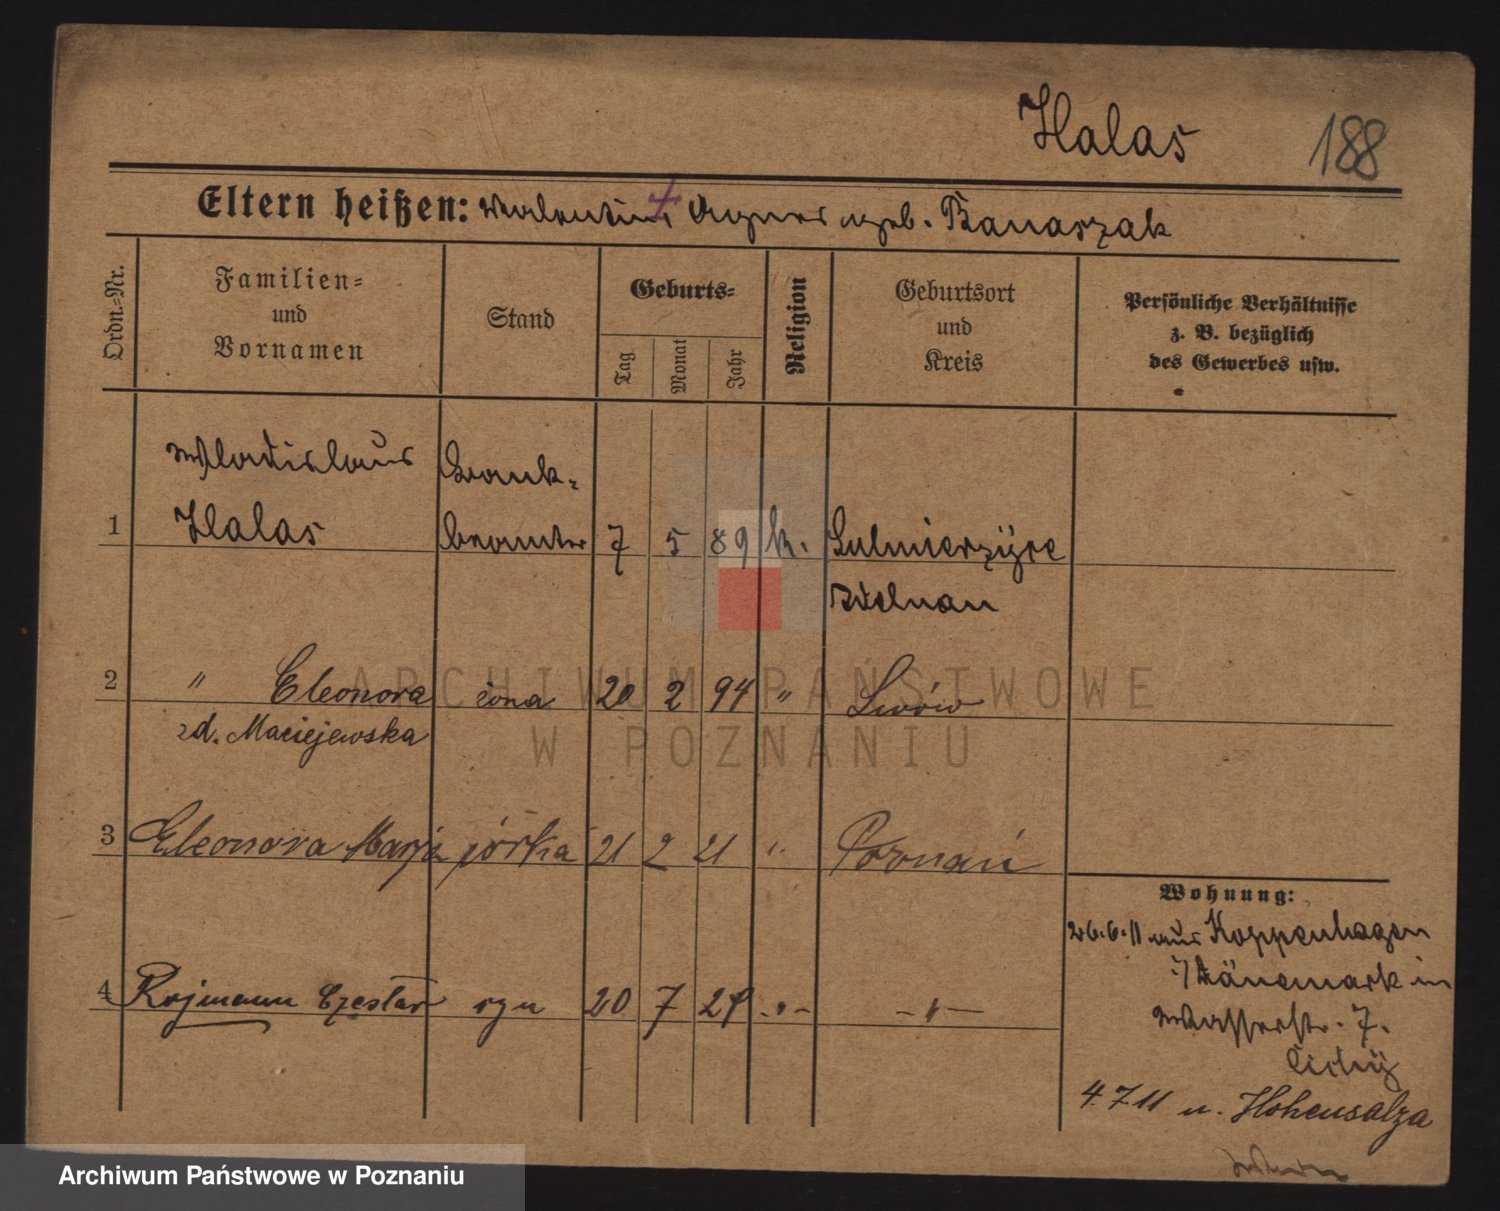 Halas 188
Eltern heißen: Valentin + Agnes geb. Banaszak
Ordn.=Nr.
Familien=
und
Vornamen
Stand
Geburts=
Tag
Monat
Jahr
Religion
Geburtsort
und
Kreis
Persönliche Verhältnisse
z. B. bezüglich
des Gewerbes usw.
Wladislaus Bank-
1 Halas beamter 7 5 89 k. Sulmierzyce
Adelnau
2 " Eleonora żona 20 2 94 " Lwów
zd. Maciejewska
3 Eleonora Marja córka 21 2 21 " Poznań
4 Rajmann syn 20 7 -"- -"-
Wohnung:
26.6.11 aus Koppenhagen
i/Dänemark in
Wasserstr. 7.
4.7.11 n. Hohensalza
ARCHIWUM PAŃSTWOWE
W POZNANIU
Archiwum Państwowe w Poznaniu